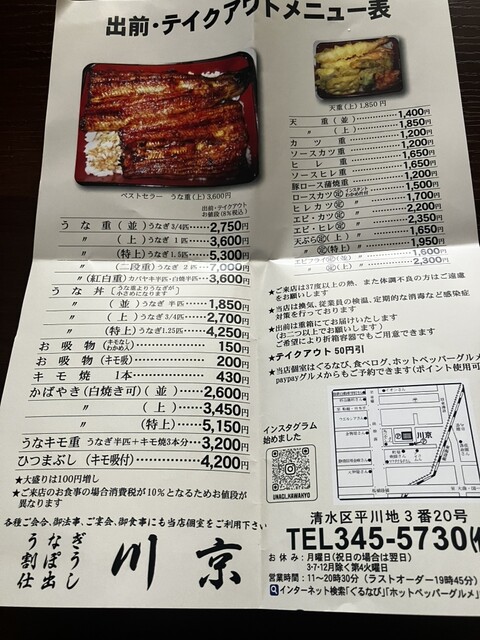 出前・テイクアウトメニュー表
ベストセラー うな重(上)3,600円
天重(上)1,850円
出前・テイクアウト
お値段(8%税込)
うな重(並)うなぎ3/4匹……2,750円
〃(上)うなぎ1匹……3,600円
〃(特上)うなぎ1.5匹……5,300円
〃(二段重)うなぎ2匹……7,000円
〃(紅白重)カバヤキ半匹・白焼半匹…3,600円
うな丼(うな重よりうなぎが小さめになります)
〃(並)うなぎ半匹……1,850円
〃(上)うなぎ3/4匹……2,700円
〃(特上)うなぎ1.25匹……4,250円
お吸物(キモなしわかめ入)……150円
お吸物(キモ吸)……200円
キモ焼 1本……430円
かばやき(白焼き可)(並)……2,600円
〃(上)……3,450円
〃(特上)……5,150円
うなキモ重 うなぎ半匹+キモ焼3本分…3,200円
ひつまぶし(キモ吸付)……4,200円
★大盛りは100円増し
★ご来店のお食事の場合消費税が10%となるためお値段が
異なります
天重(並)……1,400円
〃(上)……1,850円
カツ重……1,200円
ソースカツ重……1,200円
ヒレ重……1,650円
ソースヒレ重……1,650円
豚ロース蒲焼重……1,200円
ロースカツ定 インスタントわかめ汁付……1,500円
ヒレカツ定〃……1,700円
エビ・カツ定〃……2,200円
エビ・ヒレ定〃……2,350円
天ぷら定(並)〃……1,550円
〃定(特上)〃……1,950円
エビフライ定〃……2,300円
★ご来店は37度以上の熱、また体調不良の方はご遠慮
をお願いします
★当店は換気、従業員の検温、定期的な消毒など感染症
対策を行っております
★出前は重箱にてお届けいたします
(お二つ以上でお願いします)
ご希望により折箱容器でもご用意できます
★テイクアウト50円引
★当店個室はぐるなび、食べログ、ホットペッパーグルメ
paypayグルメからもご予約できます(ポイント使用可
インスタグラム
始めました
UNAGI.KAWAKYO
川京
各種ご会合、御法事、ご宴会、御食事にも当店個室をご利用下さい
うなぎ
割ぽう
仕出し
川京
清水区平川地3番20号
TEL345-5730㈹
お休み:月曜日(祝日の場合は翌日)
3・7・12月除く第4火曜日
営業時間:11〜20時30分(ラストオーダー19時45分)
インターネット検索「ぐるなび」「ホットペッパーグルメ」